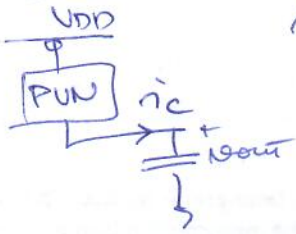 VDD
PUN
ic
+
vout